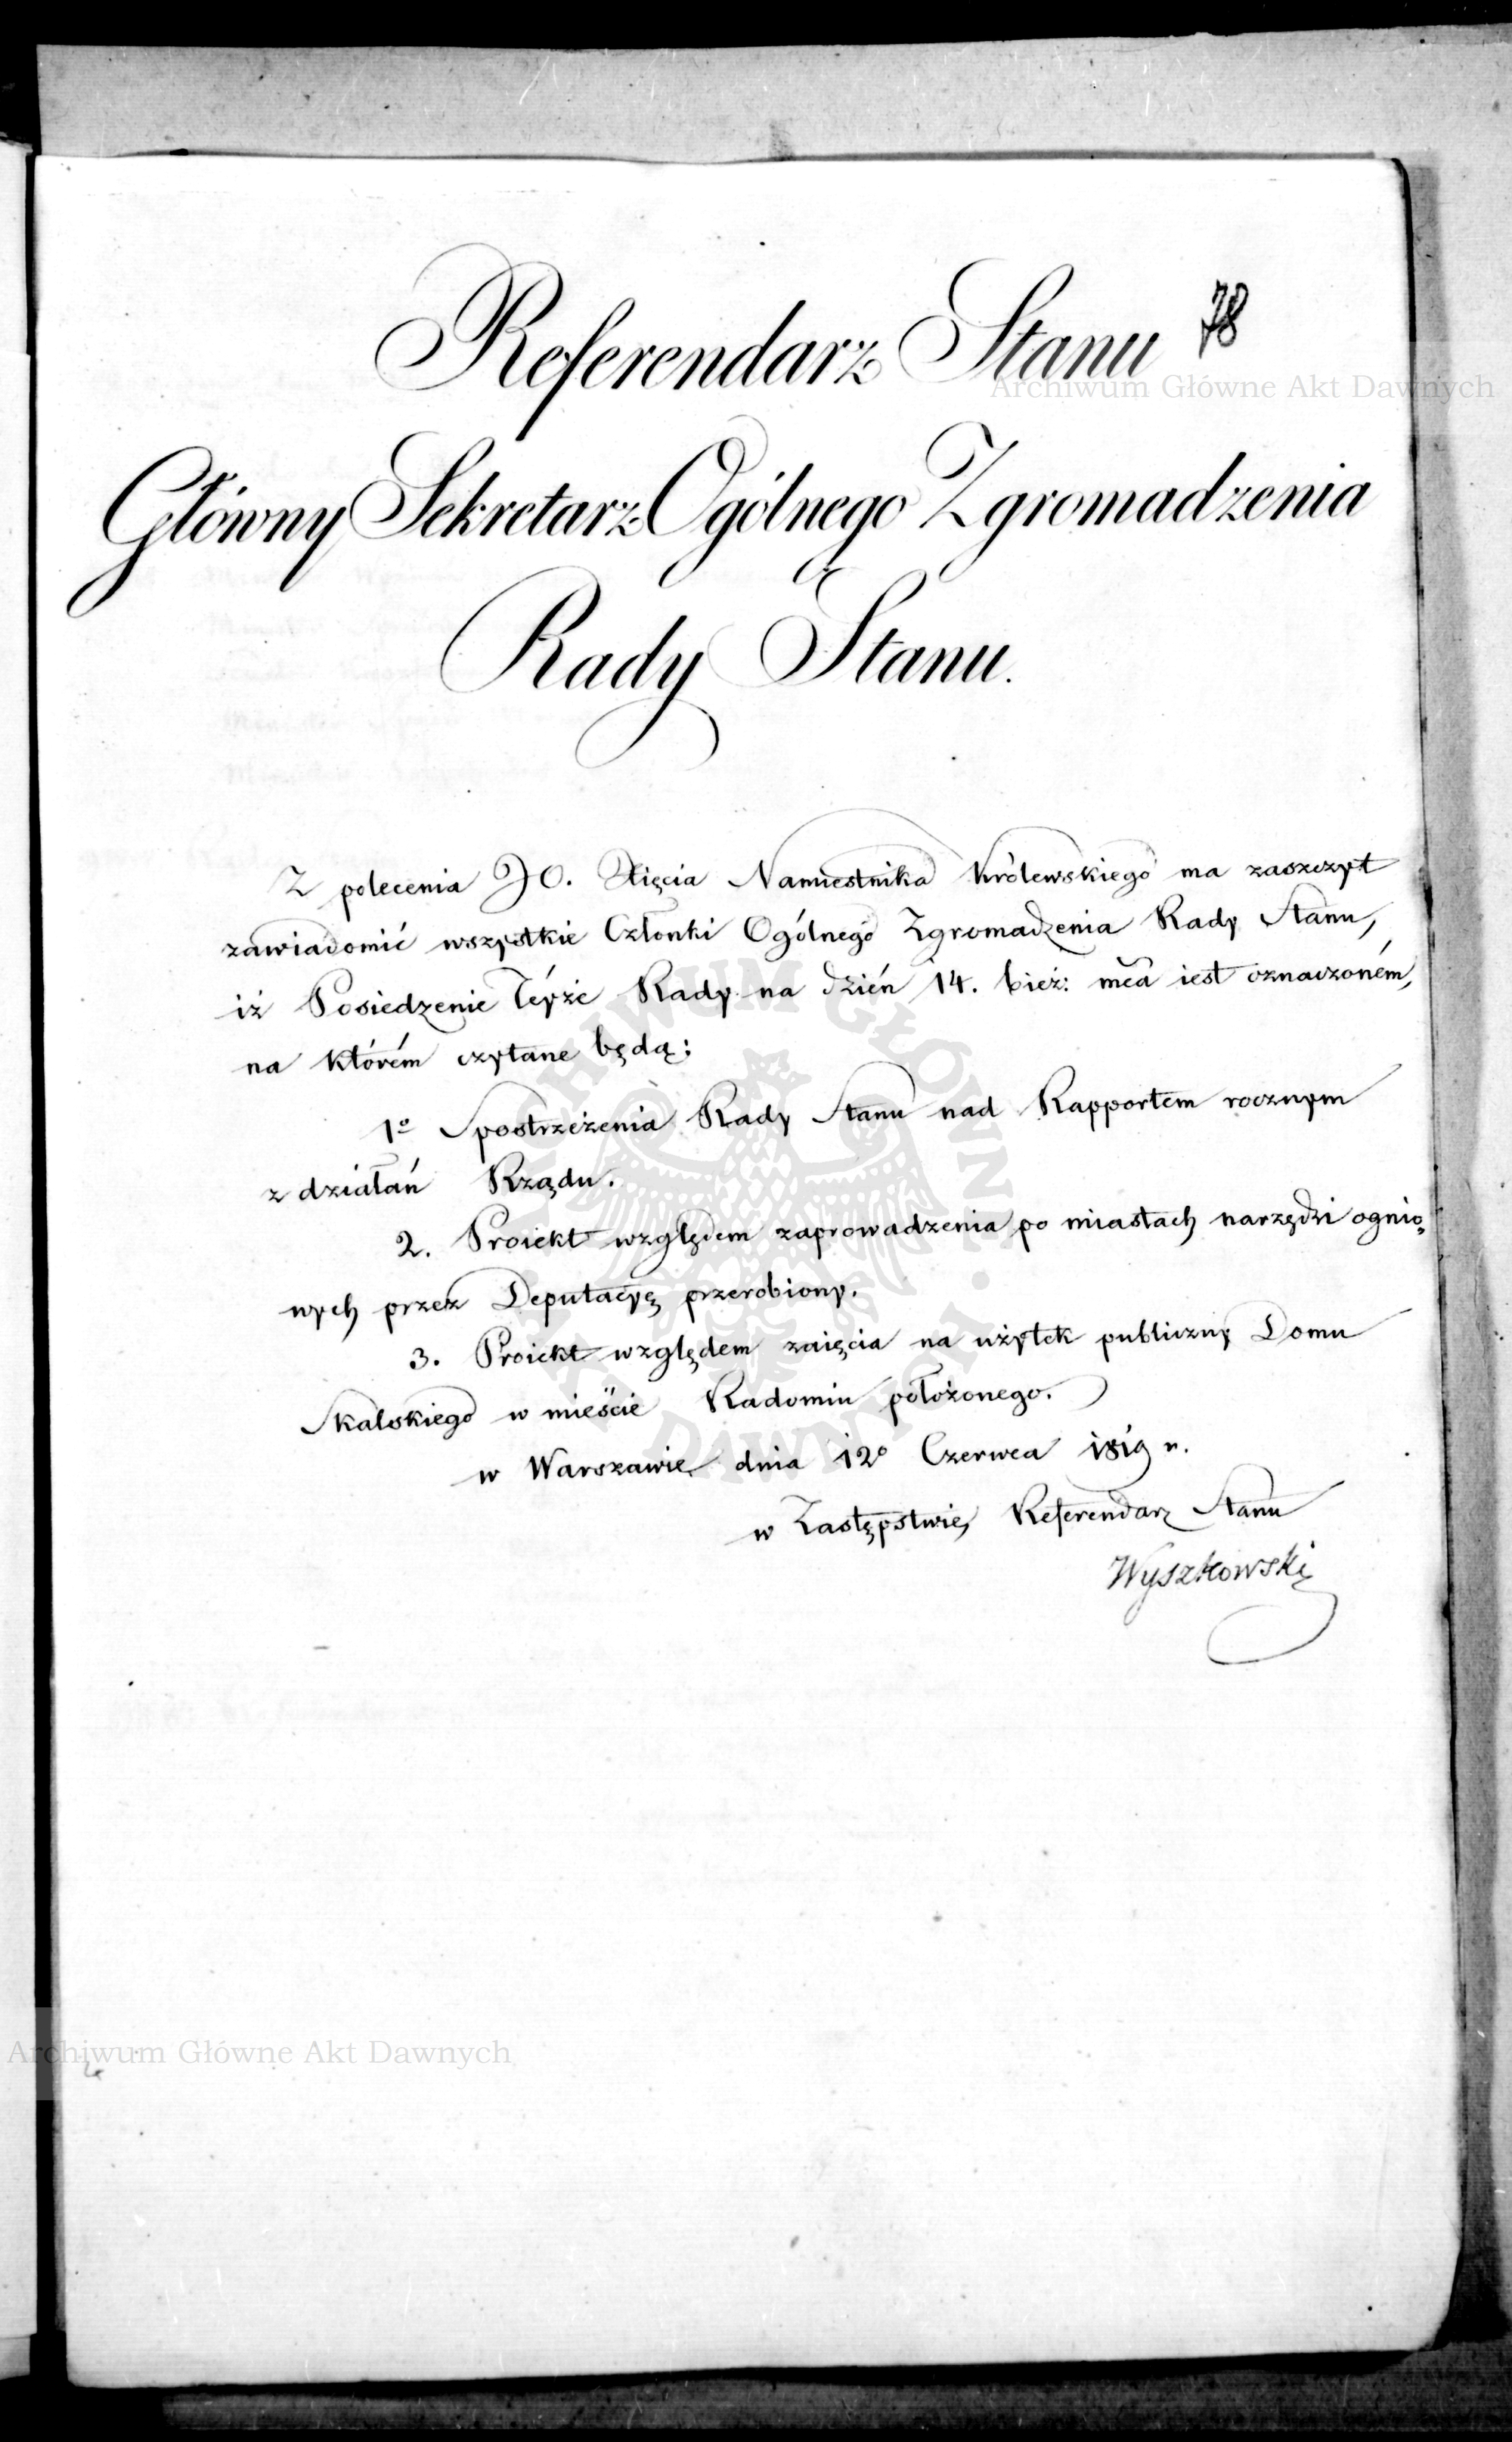 78
Referendarz Stanu
Archiwum Główne Akt Dawnych
Główny Sekretarz Ogólnego Zgromadzenia
Rady Stanu.
Z polecenia JO. Xięcia Namiestnika Królewskiego ma zaszczyt
zawiadomić wszystkie Członki Ogólnego Zgromadzenia Rady Stanu,
iż Posiedzenie Téyże Rady na dzień 14. bież: mca iest oznaczoném,
na którém czytane będą:
1º Spostrzeżenia Rady Stanu nad Rapportem rocznym
z działań Rządu.
2. Proiekt względem zaprowadzenia po miastach narzędzi ognio„
wych przez Deputacyę przerobiony.
3. Proiekt względem zaięcia na użytek publiczny Domu
Skalskiego w mieście Radomiu położonego.
w Warszawie dnia 12º Czerwca 1819 r.
w Zastępstwie, Referendarz Stanu
Wyszkowski
ARCHIWUM GŁÓWNE AKT DAWNYCH
Archiwum Główne Akt Dawnych